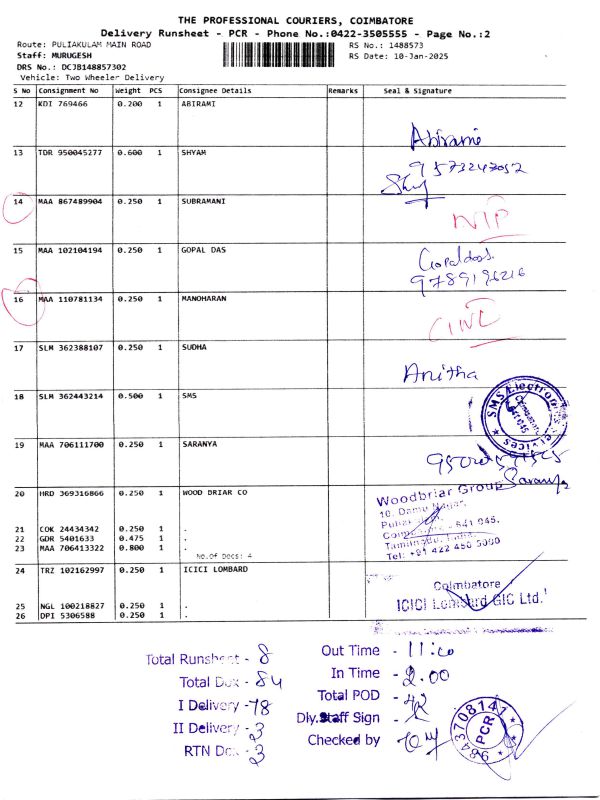 THE PROFESSIONAL COURIERS, COIMBATORE
Delivery Runsheet - PCR - Phone No.:0422-3505555 - Page No.:2
Route: PULIAKULAM MAIN ROAD
RS No.: 1488573
Staff: MURUGESH
RS Date: 10-Jan-2025
DRS No.: DCJB148857302
Vehicle: Two Wheeler Delivery
S No Consignment No Weight PCS Consignee Details Remarks Seal & Signature
12 KDI 769466 0.200 1 ABIRAMI
Abirami
13 TDR 950045277 0.600 1 SHYAM
14 MAA 867489904 0.250 1 SUBRAMANI
NIP
15 MAA 102104194 0.250 1 GOPAL DAS
Gopaldas.
9789196216
16 MAA 110781134 0.250 1 MANOHARAN
17 SLM 362388107 0.250 1 SUDHA
Anitha
18 SLM 362443214 0.500 1 SMS
SMS Electronic Services
19 MAA 706111700 0.250 1 SARANYA
Saranya
20 HRD 369316866 0.250 1 WOOD BRIAR CO
Woodbriar Group
21 COK 24434342 0.250 1 .
22 GDR 5401633 0.475 1 .
23 MAA 706413322 0.800 1 .
No.Of Docs: 4
24 TRZ 102162997 0.250 1 ICICI LOMBARD
Coimbatore
ICICI Lombard GIC Ltd.
25 NGL 100218827 0.250 1 .
26 DPI 5306588 0.250 1 .
Total Runsheet - 8
Total Dox - 84
I Delivery - 78
II Delivery - 3
RTN Dox - 3
Out Time - 11:00
In Time - 2.00
Total POD - 42
Dly.Staff Sign -
Checked by
9843708141
PCR